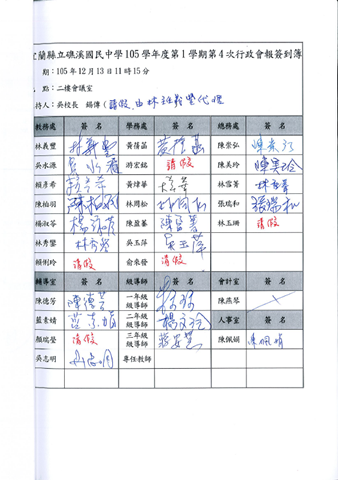 宜蘭縣立礁溪國民中學105學年度第1學期第4次行政會報簽到簿
期：105年12月13日11時15分
點：二樓會議室
持人：吳校長 錫傳(請假，由林義豐代理
教務處 簽名 學務處 簽名 總務處 簽名
林義豐 林義豐 黃蓓菡 黃蓓菡 陳崇弘
吳水源 吳水源 游宏銘 請假 陳美玲 陳美玲
賴彥希 黃煒華 林雪菁
陳柏羽 陳柏羽 林周松 林周松 張瑞和
楊淑苓 陳盈蓁 陳盈蓁 林玉珊 請假
林秀鑾 林秀鑾 吳玉萍 吳玉萍
賴俐玲 請假 俞來發 請假
輔導室 簽名 級導師 簽名 會計室 簽名
陳德芳 陳德芳 一年級級導師 陳燕琴
藍素嬌 二年級級導師 人事室 簽名
顏瑞瑩 請假 三年級級導師 陳佩娟 陳佩娟
吳志明 吳志明 專任教師